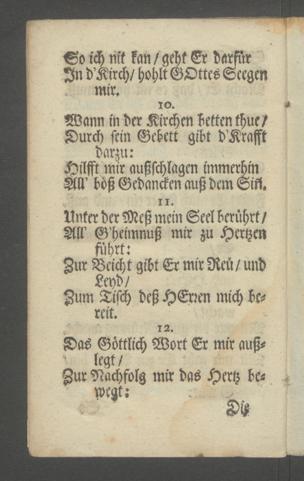 So ich nit kan / geht Er darfür
In d'Kirch / hohlt GOttes Seegen
mir.
10.
Wann in der Kirchen betten thue /
Durch sein Gebett gibt d'Krafft
darzu:
Hilfft mir außschlagen immerhin
All' böß Gedancken auß dem Siñ.
11.
Unter der Meß mein Seel berührt /
All' G'heimnuß mir zu Hertzen
führt:
Zur Beicht gibt Er mir Reü / und
Leyd /
Zum Tisch deß HErren mich be-
reit.
12.
Das Göttlich Wort Er mir auß-
legt /
Zur Nachfolg mir das Hertz be-
wegt:
Die